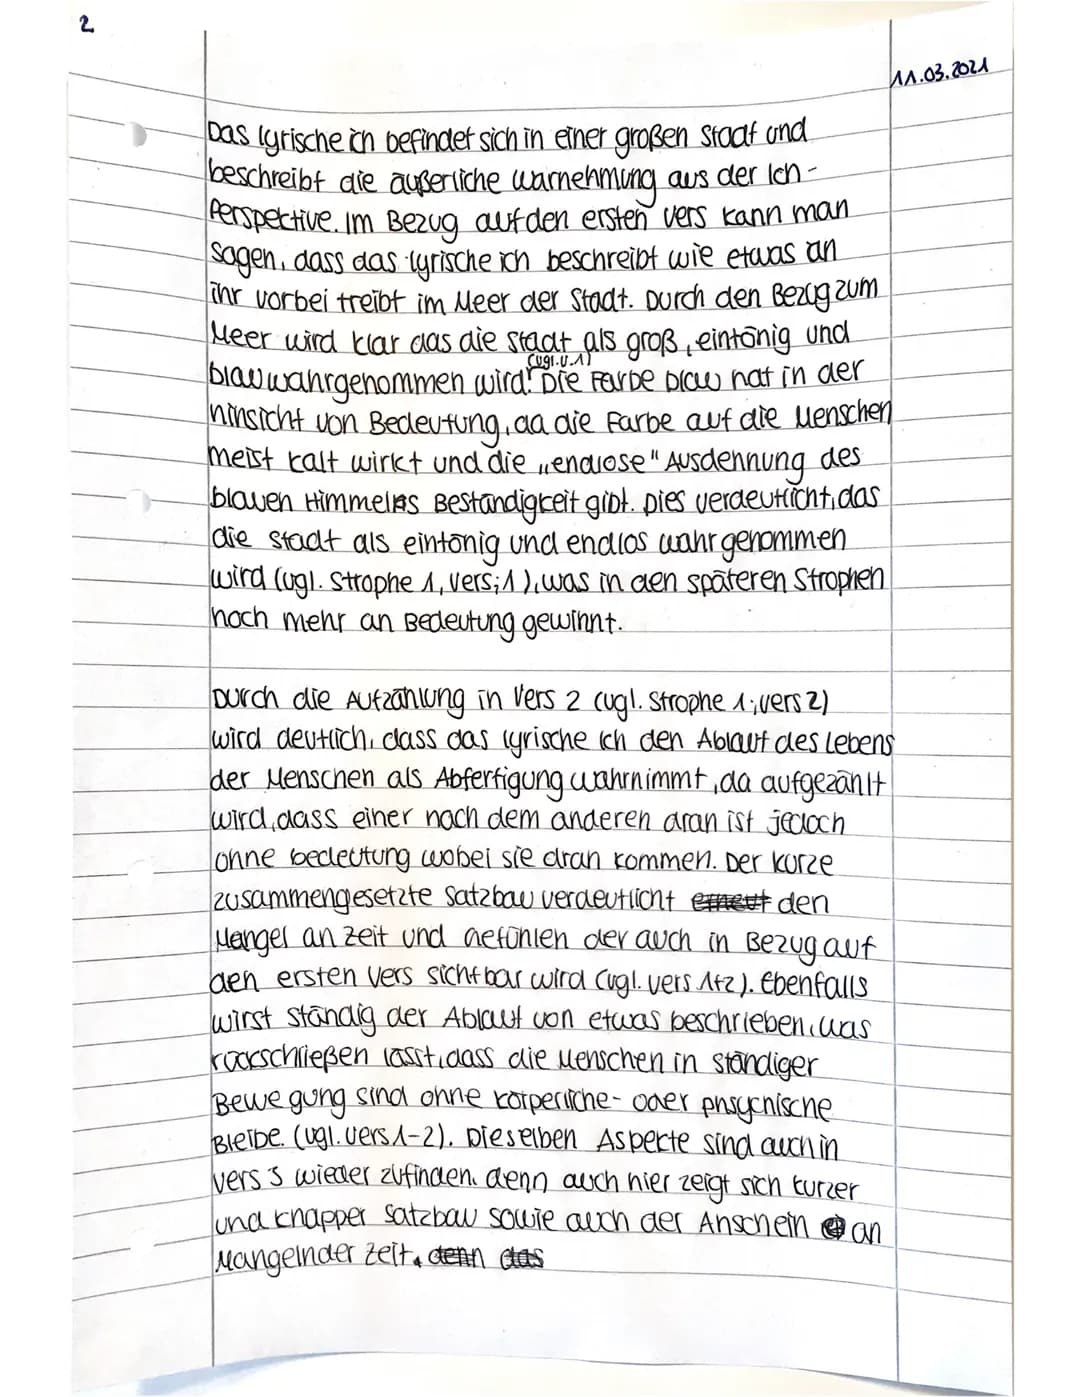 2
11.03.2021
Das lyrische ich befindet sich in einer großen Stadt und
beschreibt die äußerliche warnehmung aus der Ich-
Perspektive. Im Bezug auf den ersten vers kann man
sagen, dass das lyrische ich beschreibt wie etwas an
ihr vorbei treibt im Meer der Stadt. Durch den Bezug zum
Meer wird klar das die stadt als groß, eintönig und
(vgl. V. 1)
blau wahrgenommen wird. Die Farbe blau hat in der
hinsicht von Bedeutung, da die Farbe auf die Menschen
meist kalt wirkt und die „endlose" Ausdehnung des
blauen Himmels Beständigkeit gibt. Dies verdeutlicht, das
die stadt als eintönig und endlos wahrgenommen
wird (vgl. Strophe 1, vers; 1), was in den späteren Strophen
noch mehr an Bedeutung gewinnt.
Durch die Aufzählung in Vers 2 (vgl. Strophe 1; vers 2)
wird deutlich, dass das lyrische Ich den Ablauf des Lebens
der Menschen als Abfertigung wahrnimmt, da aufgezählt
wird, dass einer nach dem anderen dran ist jedoch
ohne bedeutung wobei sie dran kommen. Der kurze
zusammengesetzte Satzbau verdeutlicht erneut den
Mangel an Zeit und Gefühlen der auch in Bezug auf
den ersten Vers sichtbar wird (vgl. vers 1+2). Ebenfalls
wirst ständig der Ablauf von etwas beschrieben, was
rückschließen lässt, dass die Menschen in ständiger
Bewegung sind ohne körperliche- oder phsychische
Bleibe. (vgl. Vers 1-2). Dieselben Aspekte sind auch in
vers 3 wieder zufinden. denn auch hier zeigt sich kurzer
und knapper Satzbau sowie auch der Anschein an
Mangelnder zeit. denn das